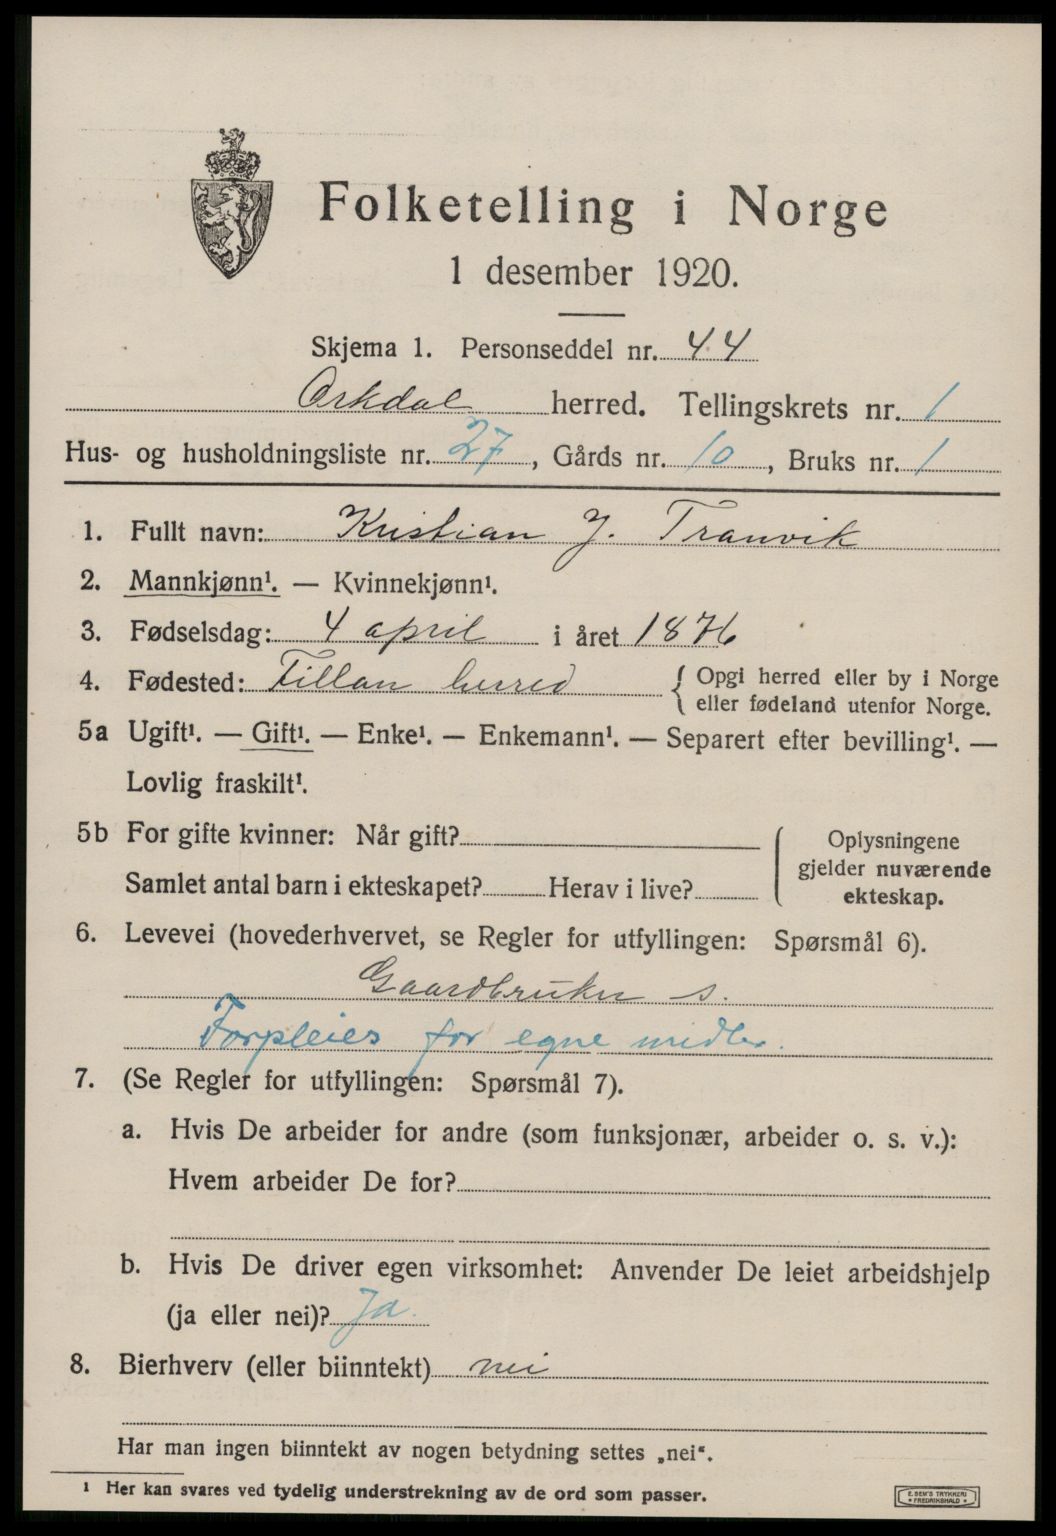 Folketelling i Norge
1 desember 1920.
Skjema 1. Personseddel nr. 44
Orkdal herred. Tellingskrets nr. 1
Hus- og husholdningsliste nr. 27, Gårds nr. 10, Bruks nr. 1
1. Fullt navn: Kristian J. Tranvik
2. Mannkjønn¹. — Kvinnekjønn¹.
3. Fødselsdag: 4 april i året 1876
4. Fødested: Fillan herred { Opgi herred eller by i Norge
eller fødeland utenfor Norge.
5a Ugift¹. — Gift¹. — Enke¹. — Enkemann¹. — Separert efter bevilling¹. —
Lovlig fraskilt¹.
5b For gifte kvinner: Når gift?
Samlet antal barn i ekteskapet? Herav i live?
Oplysningene
gjelder nuværende
ekteskap.
6. Levevei (hovederhvervet, se Regler for utfyllingen: Spørsmål 6).
Gaardbruker s.
Forpleies for egne midler.
7. (Se Regler for utfyllingen: Spørsmål 7).
a. Hvis De arbeider for andre (som funksjonær, arbeider o. s. v.):
Hvem arbeider De for?
b. Hvis De driver egen virksomhet: Anvender De leiet arbeidshjelp
(ja eller nei)? Ja.
8. Bierhverv (eller biinntekt) nei
Har man ingen biinntekt av nogen betydning settes „nei“.
¹ Her kan svares ved tydelig understrekning av de ord som passer.
E. SEM'S TRYKKERI
• FREDRIKSHALD •